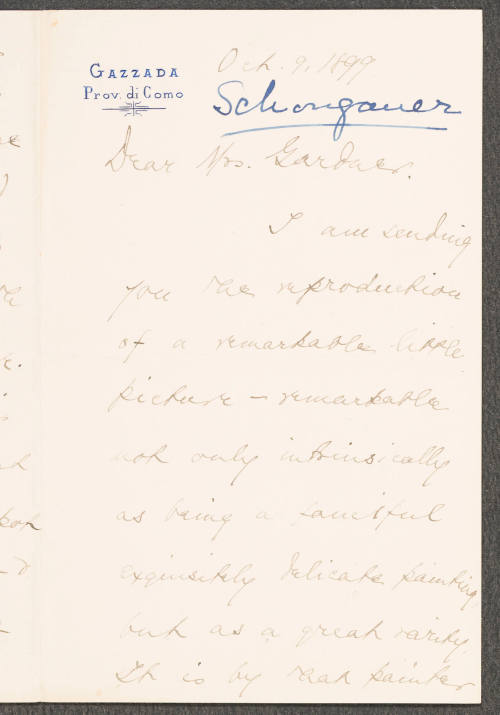 GAZZADA
Prov. di Como
Oct. 9, 1899
Schongauer
Dear Mrs. Gardner.
I am sending
you the reproduction
of a remarkable little
picture – remarkable
not only intrinsically
as being a
exquisitely delicate painting,
but as a great rarity.
It is by that painter